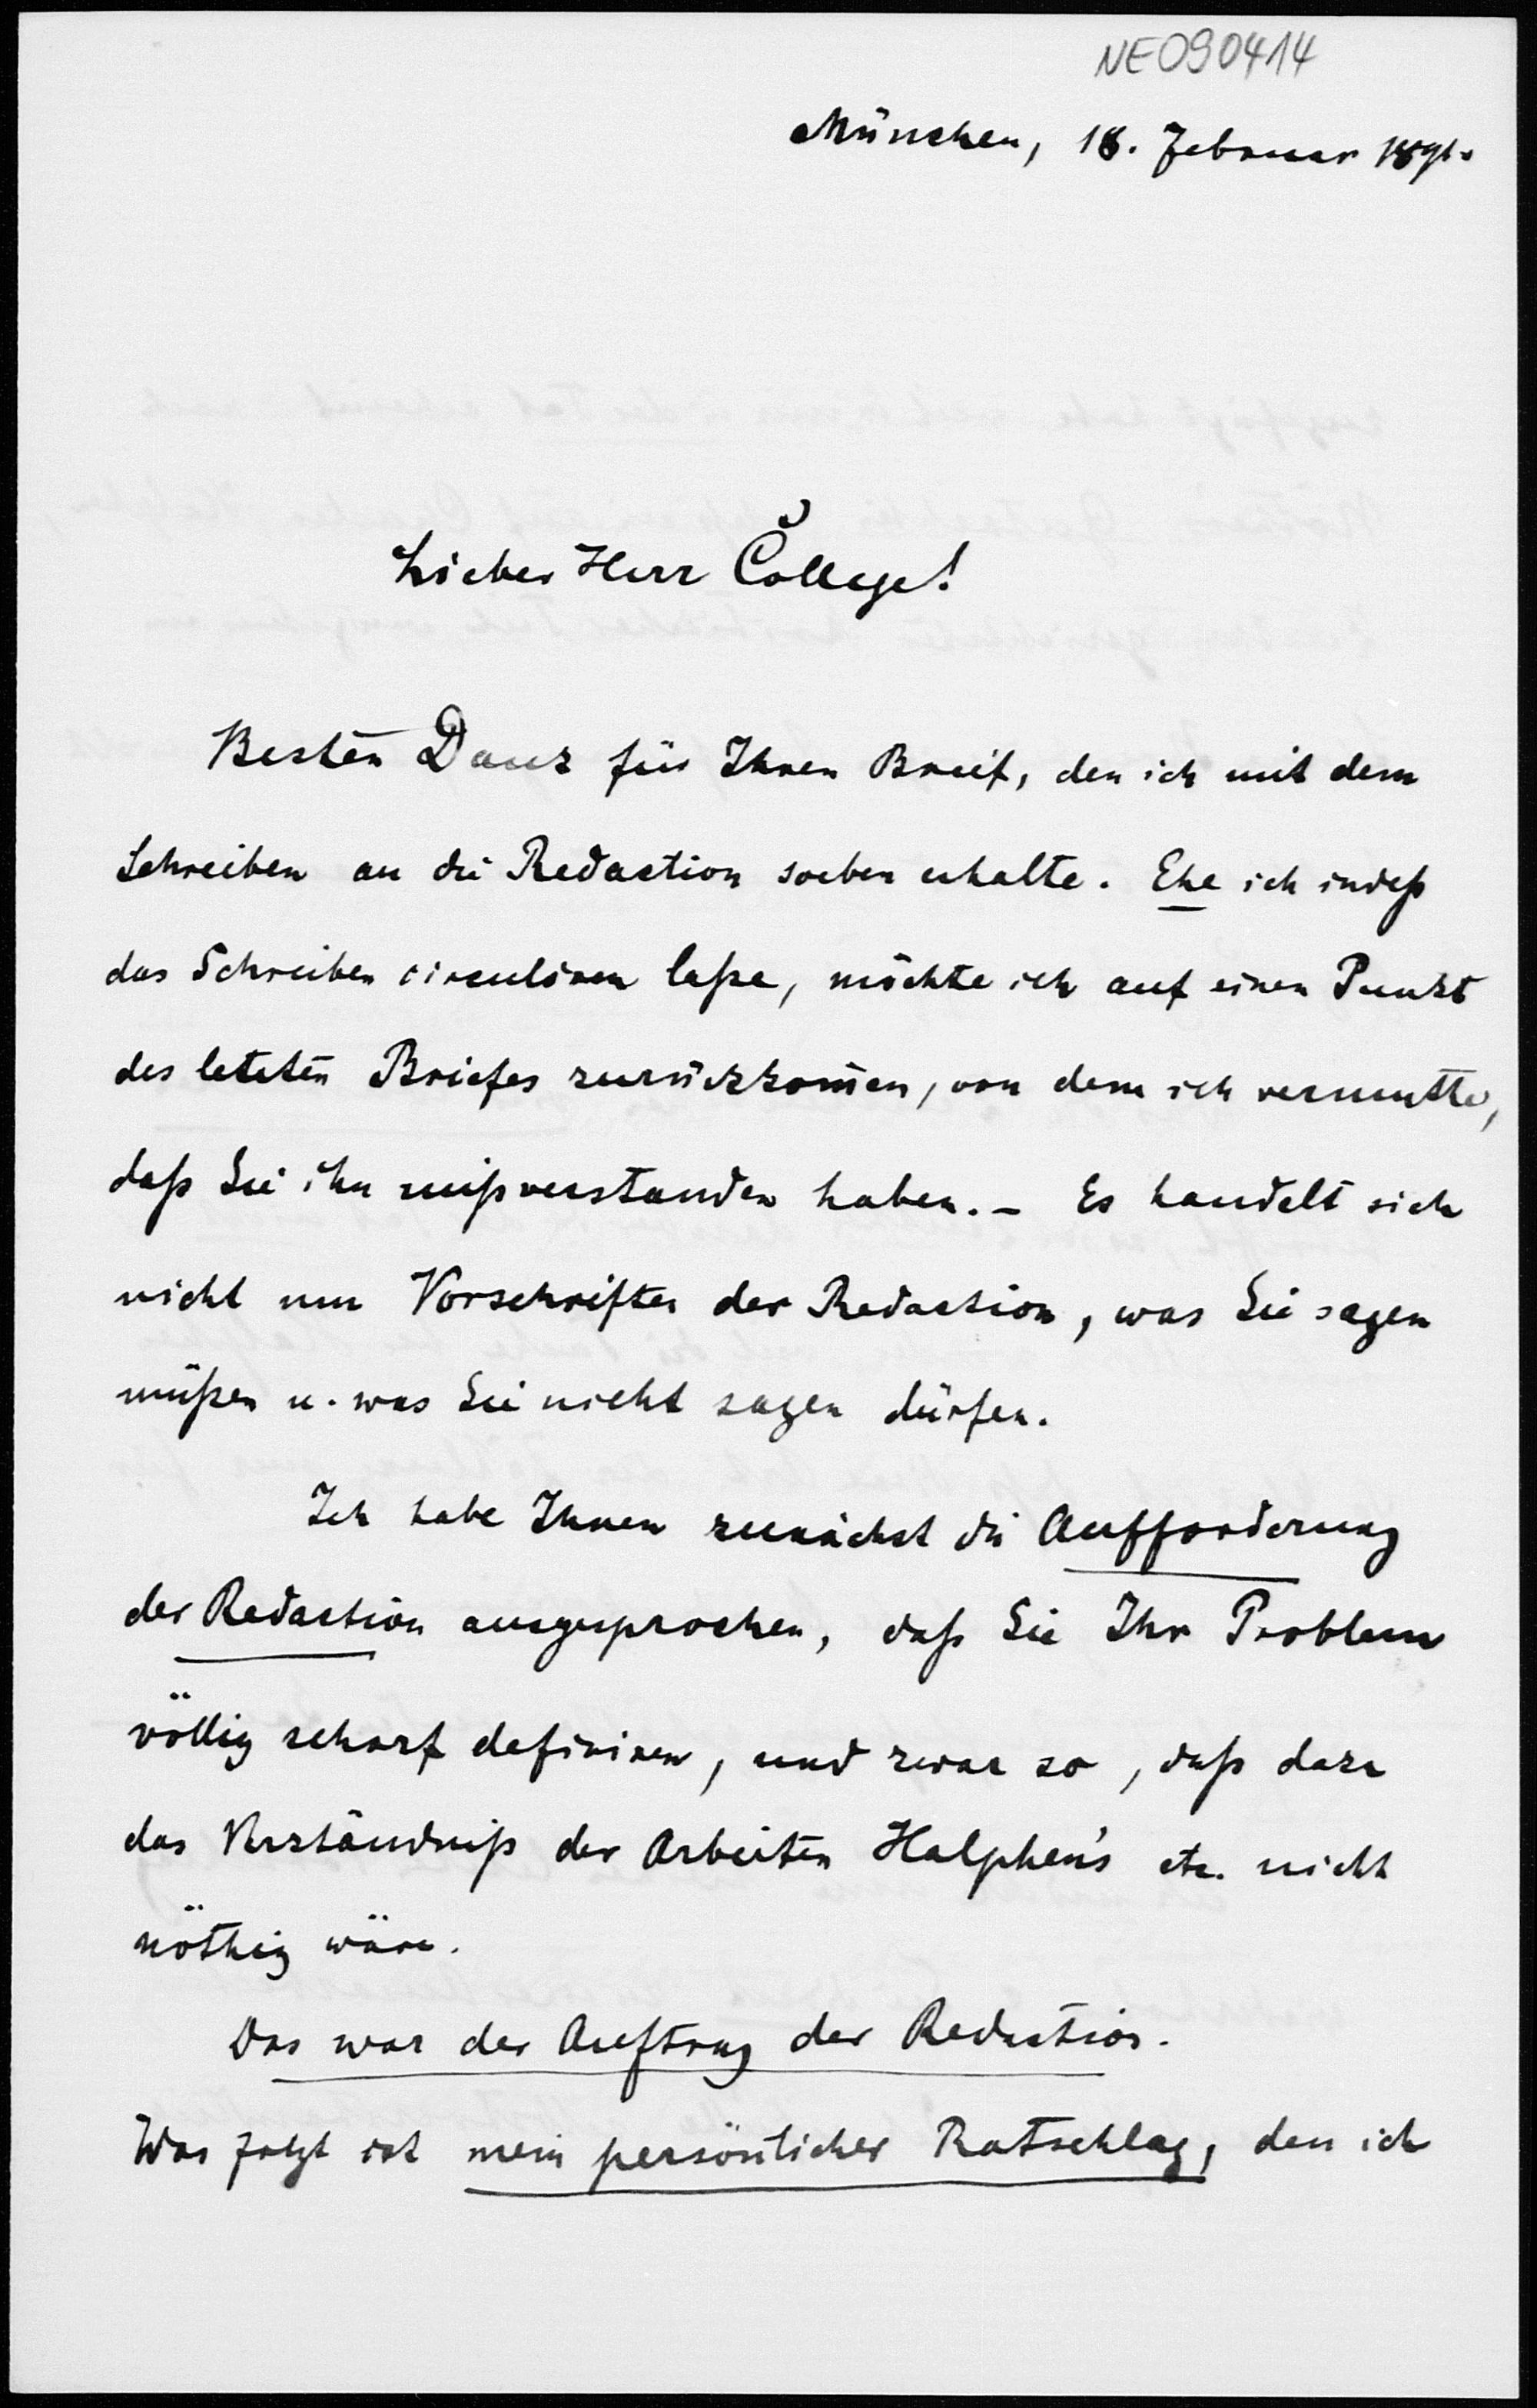 NE090414
München, 18. Februar 1891.
Lieber Herr College!
Besten Dank für Ihren Brief, den ich mit dem
Schreiben an die Redaction soeben erhalte. Ehe ich indeß
das Schreiben circuliren laße, möchte ich auf einen Punkt
des letzten Briefes zurückkom̄en, von dem ich vermuthe,
daß Sie ihn mißverstanden haben. – Es handelt sich
nicht um Vorschriften der Redaction, was Sie sagen
müßen u. was Sie nicht sagen dürfen.
Ich habe Ihnen zunächst die Aufforderung
der Redaction ausgesprochen, daß Sie Ihr Problem
völlig scharf definiren, und zwar so, daß dazu
das Verständniß der Arbeiten Halphen's etc. nicht
nöthig wäre.
Das war der Auftrag der Redaction.
Was folgt ist mein persönlicher Ratschlag, den ich